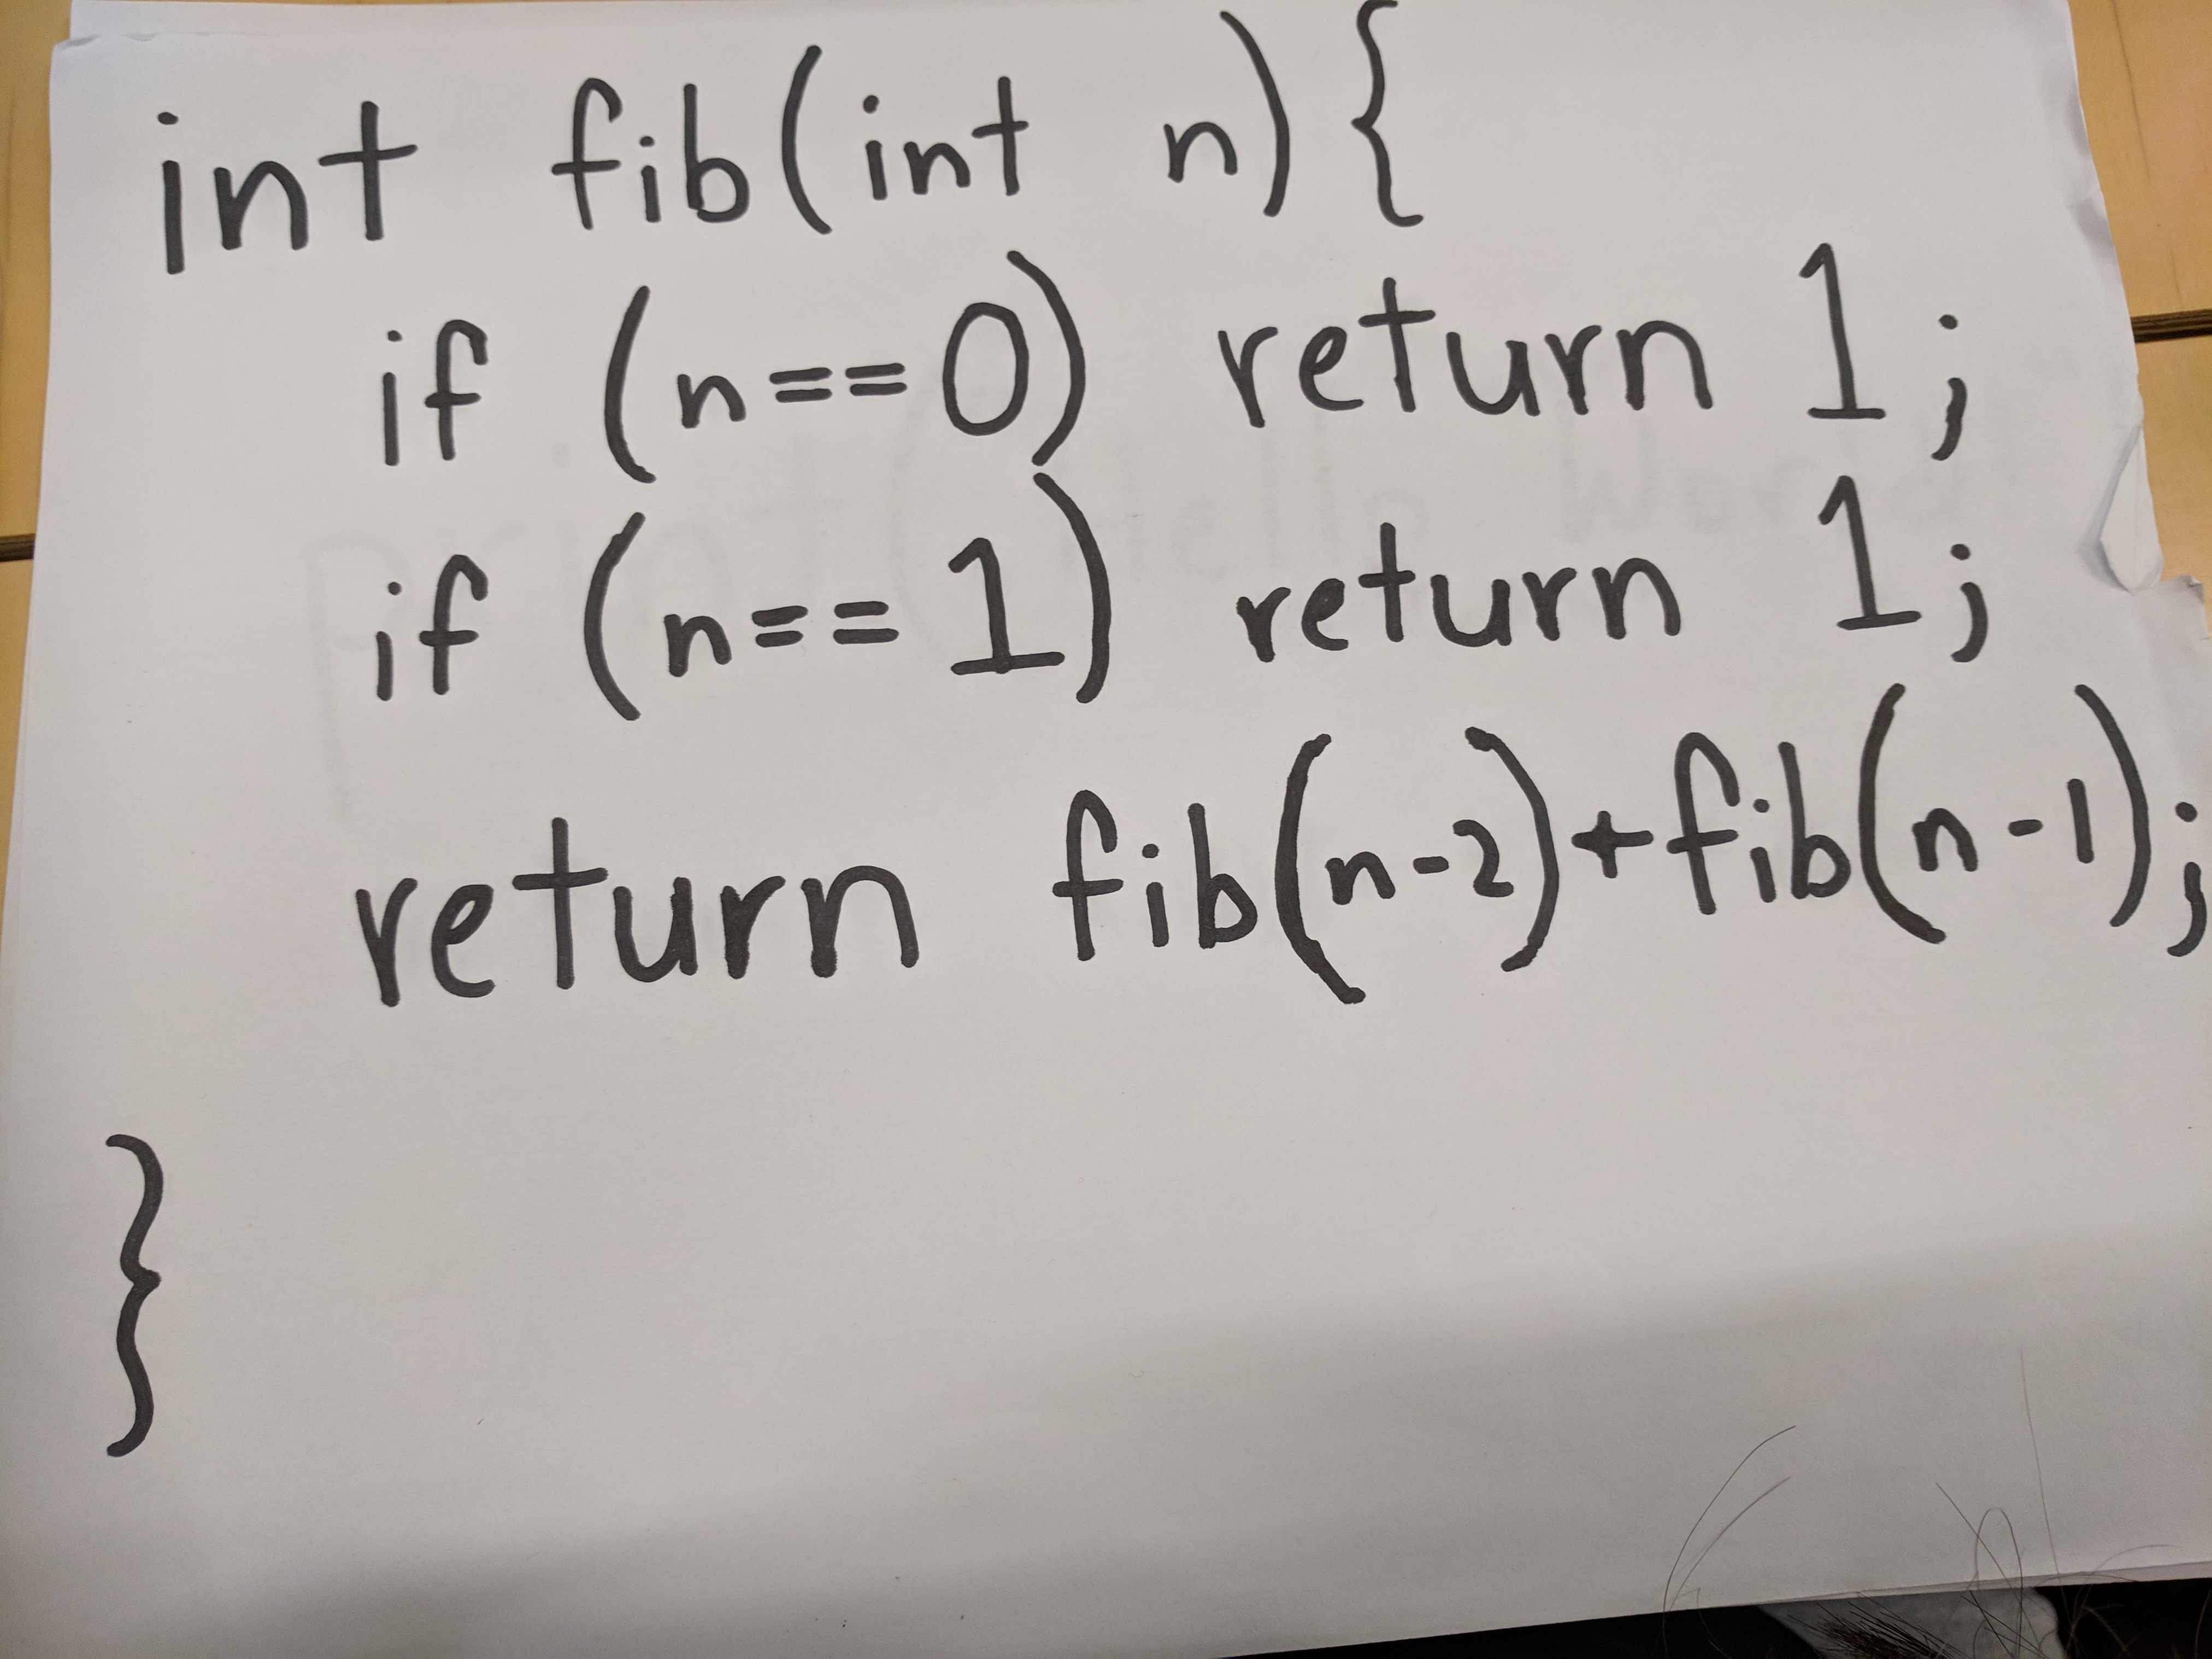 int fib(int n){
if (n==0) return 1;
if (n==1) return 1;
return fib(n-2)+fib(n-1);
}